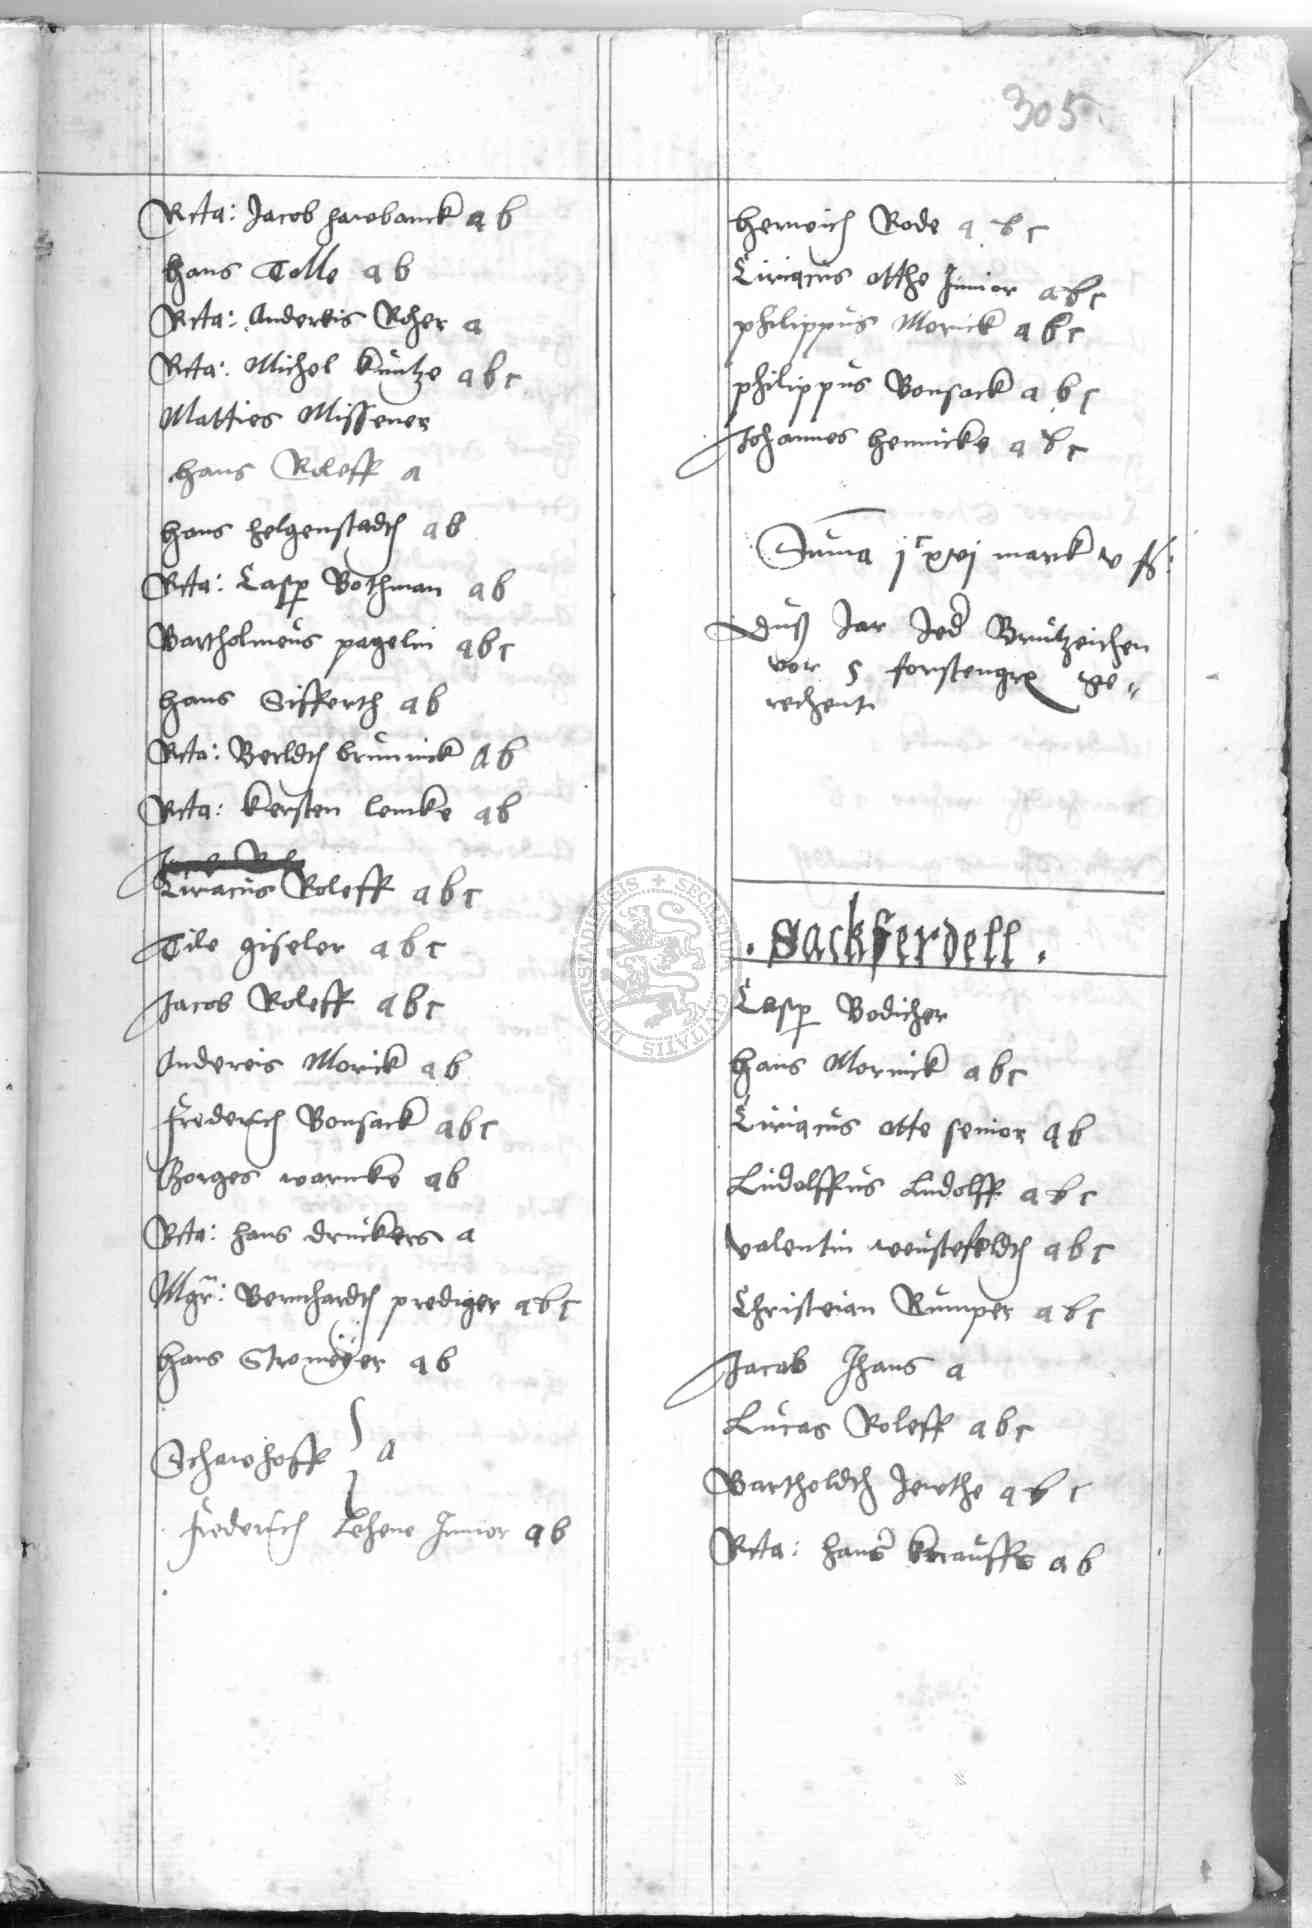 305
Rcta: Jacob hawbanck a b
Hans Tolle a b
Rcta: Andereis Roher a
Rcta: Michel Kuntze a b c
Matties Missener
Hans Roleff a
Hans Helgenstadth a b
Rcta: Casp Bothman a b
Bartholmeus pagelin a b c
Hans Sifferth a b
Rcta: Berldth bruninck a b
Rcta: Kersten lemke a b
Ciriacus Roleff a b c
Tile giseler a b c
Jacob Roleff a b c
Andereis Morick a b
Frederich Bonsack a b c
Borges warneke a b
Rcta: Hans druckers a
Mgr: Bernhardth prediger a b c
Hans Stromeÿer a b
Schawhoff } a
Frederich Lehene Junior a b
Herwich Rode a b c
Ciriacus otthe Junior a b c
philippus Morick a b c
philippus Bonsack a b c
Johannes Hennicke a b c
Suma jc xvj mark v ß:
Duß Jar Jed Bruzeichen
vor 5 forstengrx ge„
rechent.
. Sackferdell .
Casp Bodicher
Hans Mornick a b c
Ciriacus otte senior a b
Ludolffus Ludolff a b c
Valentin weustefeldth a b c
Christian Rumper a b c
Jacob Jhans a
Lucas Roleff a b c
Bartholdth Jewthe a b c
Rcta: Hans Krauffs a b
SECRETUM CIVITATIS DUDERSTADIENSIS